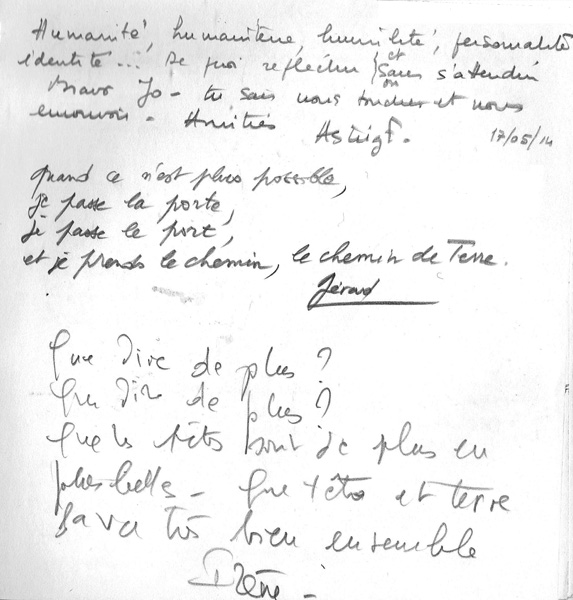 Humanité, humanitaire, humilité, personnalité
identité... De quoi réfléchir et/ou sans s'attendrir
Bravo Jo - tu sais nous toucher et nous
émouvoir - Amitiés Astrig 17/05/14
Quand ce n'est plus possible,
je passe la porte,
je passe le port,
et je prends le chemin, le chemin de Terre.
Gérard
Que dire de plus ?
Que dire de plus ?
Que les têtes sont de plus en
plus belles - Que têtes et terre
ça va très bien ensemble
Irène -